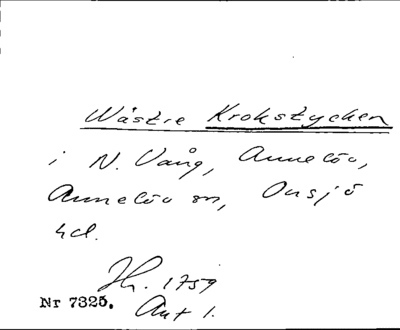 Wästre Krokstycken
i N. Vång, Annelöv,
Annelöv sn, Onsjö
hd.
Hr. 1759
Nr 7325. Akt 1.